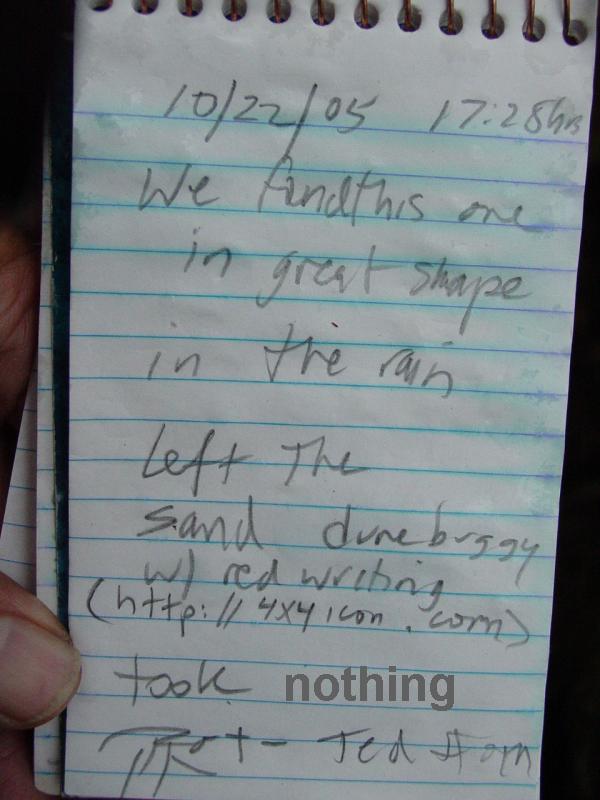 10/22/05 17:28hrs
We find this one
in great shape
in the rain
Left The
sand dunebuggy
w/ red writing
(http://4x4icon.com)
took nothing
Ted